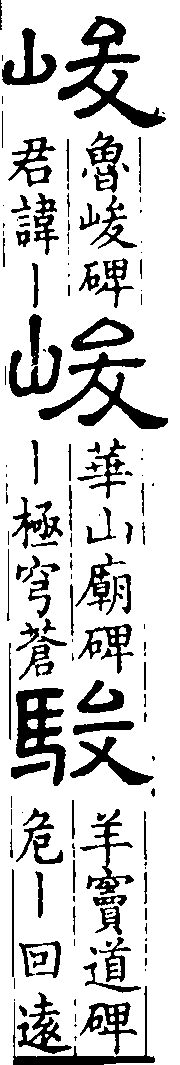 峻
魯峻碑
君諱丨
峻
華山廟碑
丨極穹蒼
駿
羊竇道碑
危丨回遠